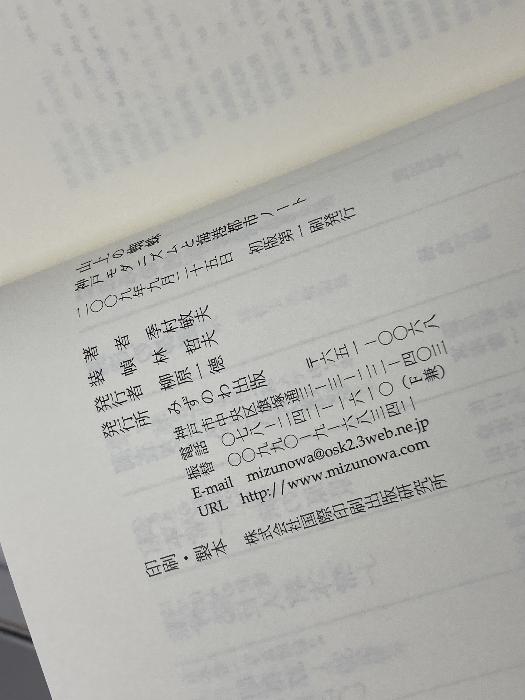 山上の蜘蛛
神戸モダニズムと海港都市ノート
二〇〇九年九月二十五日 初版第一刷発行
著者 季村敏夫
装幀 林哲夫
発行者 柳原一德
発行所 みずのわ出版
神戸市中央区旗塚通三―三―二二―四〇三
〒六五一―〇〇六八
電話 〇七八―二四二―一六一〇（F兼）
振替 〇〇九九〇―九―六八三四二
E-mail mizunowa@osk2.3web.ne.jp
URL http://www.mizunowa.com
印刷・製本 株式会社国際印刷出版研究所